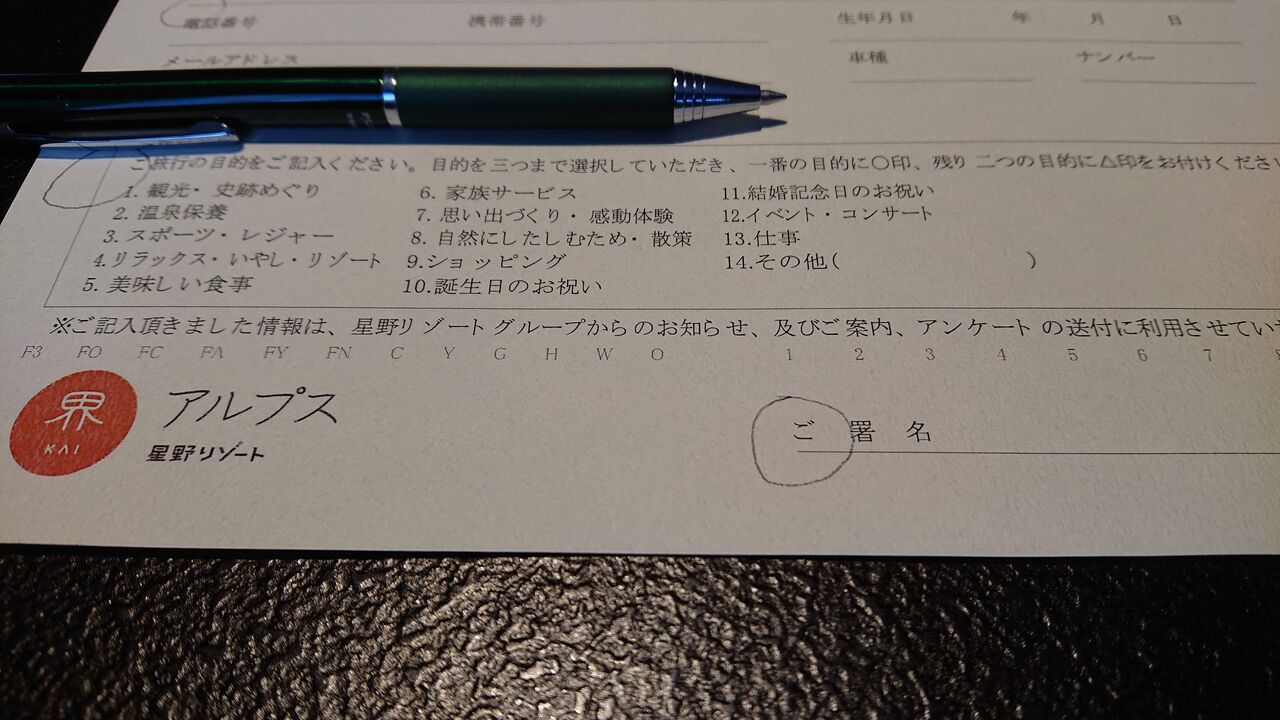 電話番号 携帯番号 生年月日 年 月 日
メールアドレス 車種 ナンバー
ご旅行の目的をご記入ください。目的を三つまで選択していただき、一番の目的に○印、残り二つの目的に△印をお付けくださ
1. 観光・史跡めぐり 6. 家族サービス 11.結婚記念日のお祝い
2. 温泉保養 7. 思い出づくり・感動体験 12.イベント・コンサート
3. スポーツ・レジャー 8. 自然にしたしむため・散策 13.仕事
4.リラックス・いやし・リゾート 9.ショッピング 14.その他( )
5. 美味しい食事 10.誕生日のお祝い
※ご記入頂きました情報は、星野リゾートグループからのお知らせ、及びご案内、アンケートの送付に利用させてい
F3 FO FC FA FY FN C Y G H W O 1 2 3 4 5 6 7
界 アルプス
KAI 星野リゾート
ご署名